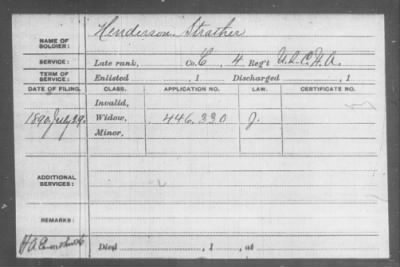 NAME OF SOLDIER: Henderson Strather
SERVICE: Late rank, Co. C, 4 Reg't U.S.C.H.A.
TERM OF SERVICE: Enlisted , 1 Discharged , 1
DATE OF FILING. CLASS. APPLICATION NO. LAW. CERTIFICATE NO.
Invalid,
1890, July 29. Widow, 446.330 J.
Minor,
ADDITIONAL SERVICES:
REMARKS:
Died , 1 , at